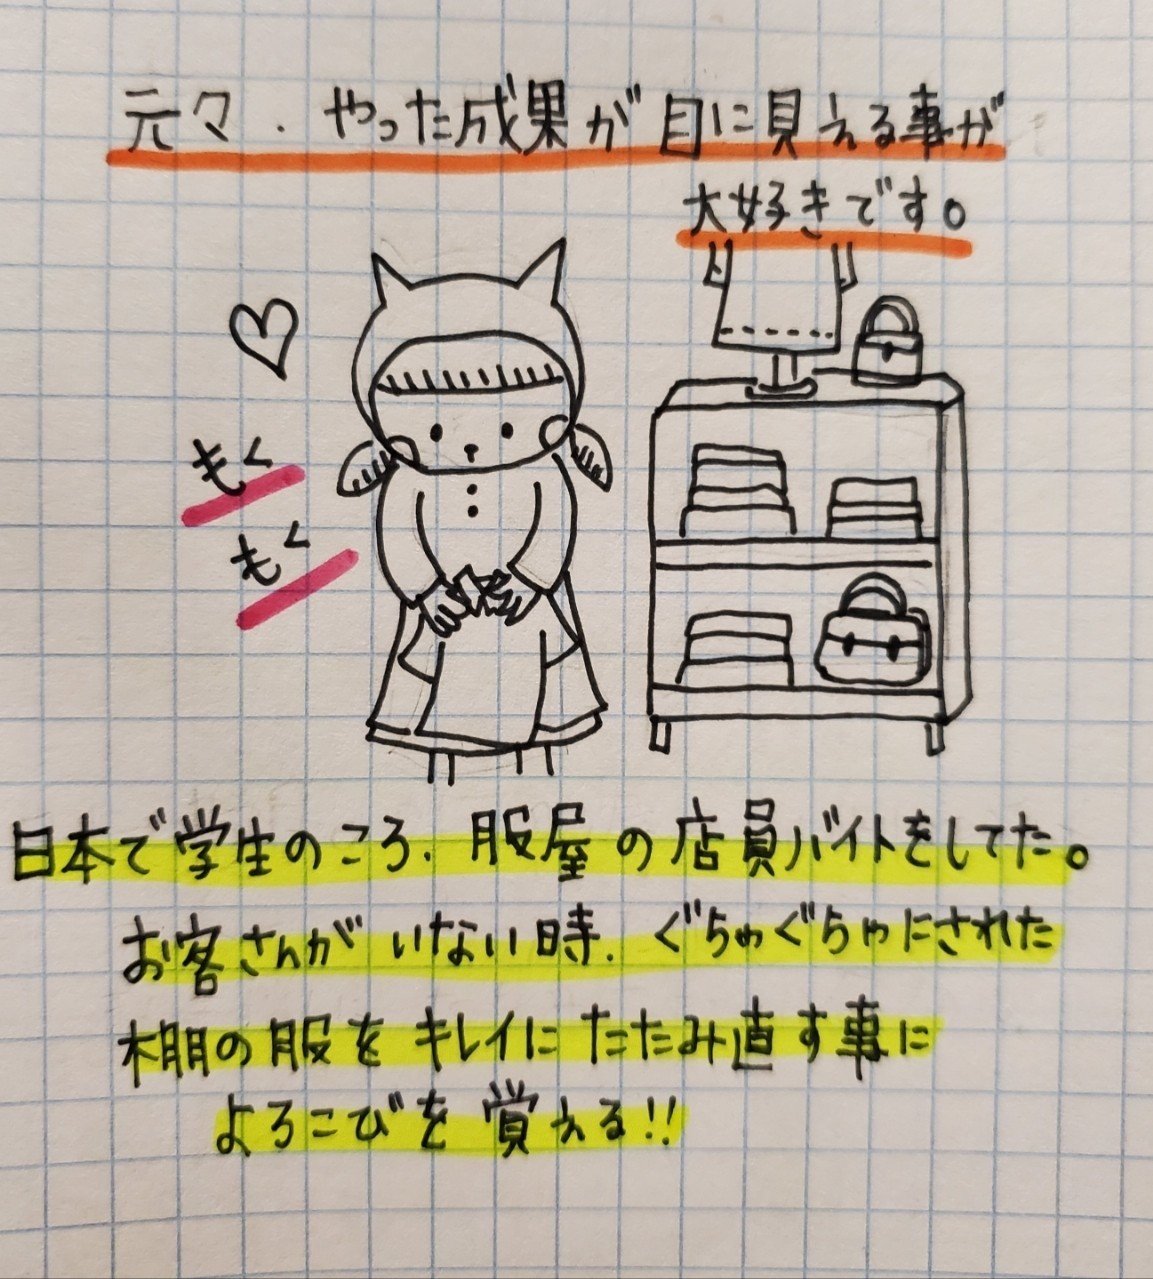 元々、やった成果が目に見える事が
大好きです。
もく
もく
日本で学生のころ、服屋の店員バイトをしてた。
お客さんがいない時、ぐちゃぐちゃにされた
棚の服をキレイにたたみ直す事に
よろこびを覚える!!